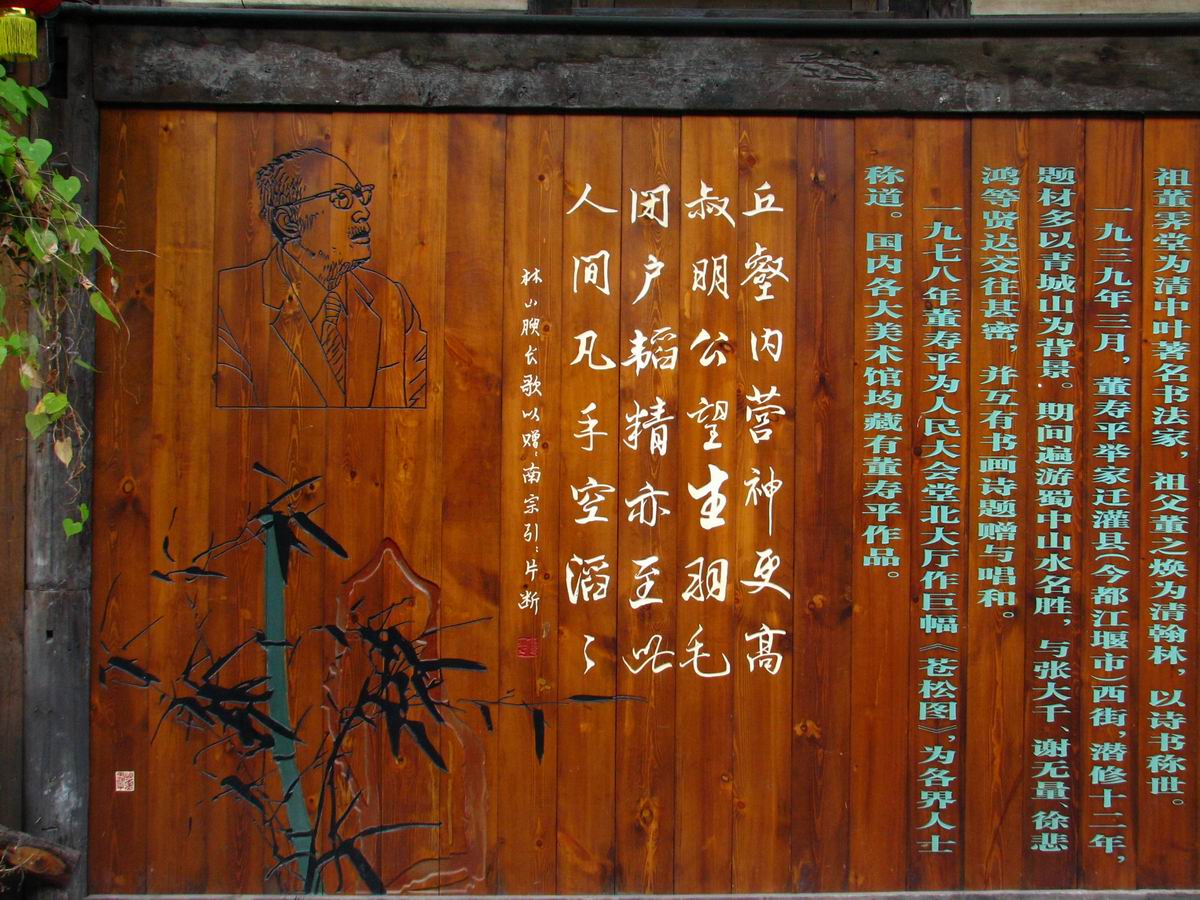 祖董霁堂为清中叶著名书法家，祖父董之焕为清翰林，以诗书称世。
一九三九年三月，董寿平举家迁灌县（今都江堰市）西街，潜修十二年，
题材多以青城山为背景。期间遍游蜀中山水名胜，与张大千、谢无量、徐悲
鸿等贤达交往甚密，并互有书画诗题赠与唱和。
一九七八年董寿平为人民大会堂北大厅作巨幅《苍松图》，为各界人士
称道。国内各大美术馆均藏有董寿平作品。
丘壑内营神更高
叔明公望生羽毛
闭户韬精亦至此
人间凡手空滔〻
林山腴长歌以赠：南宗引：片断